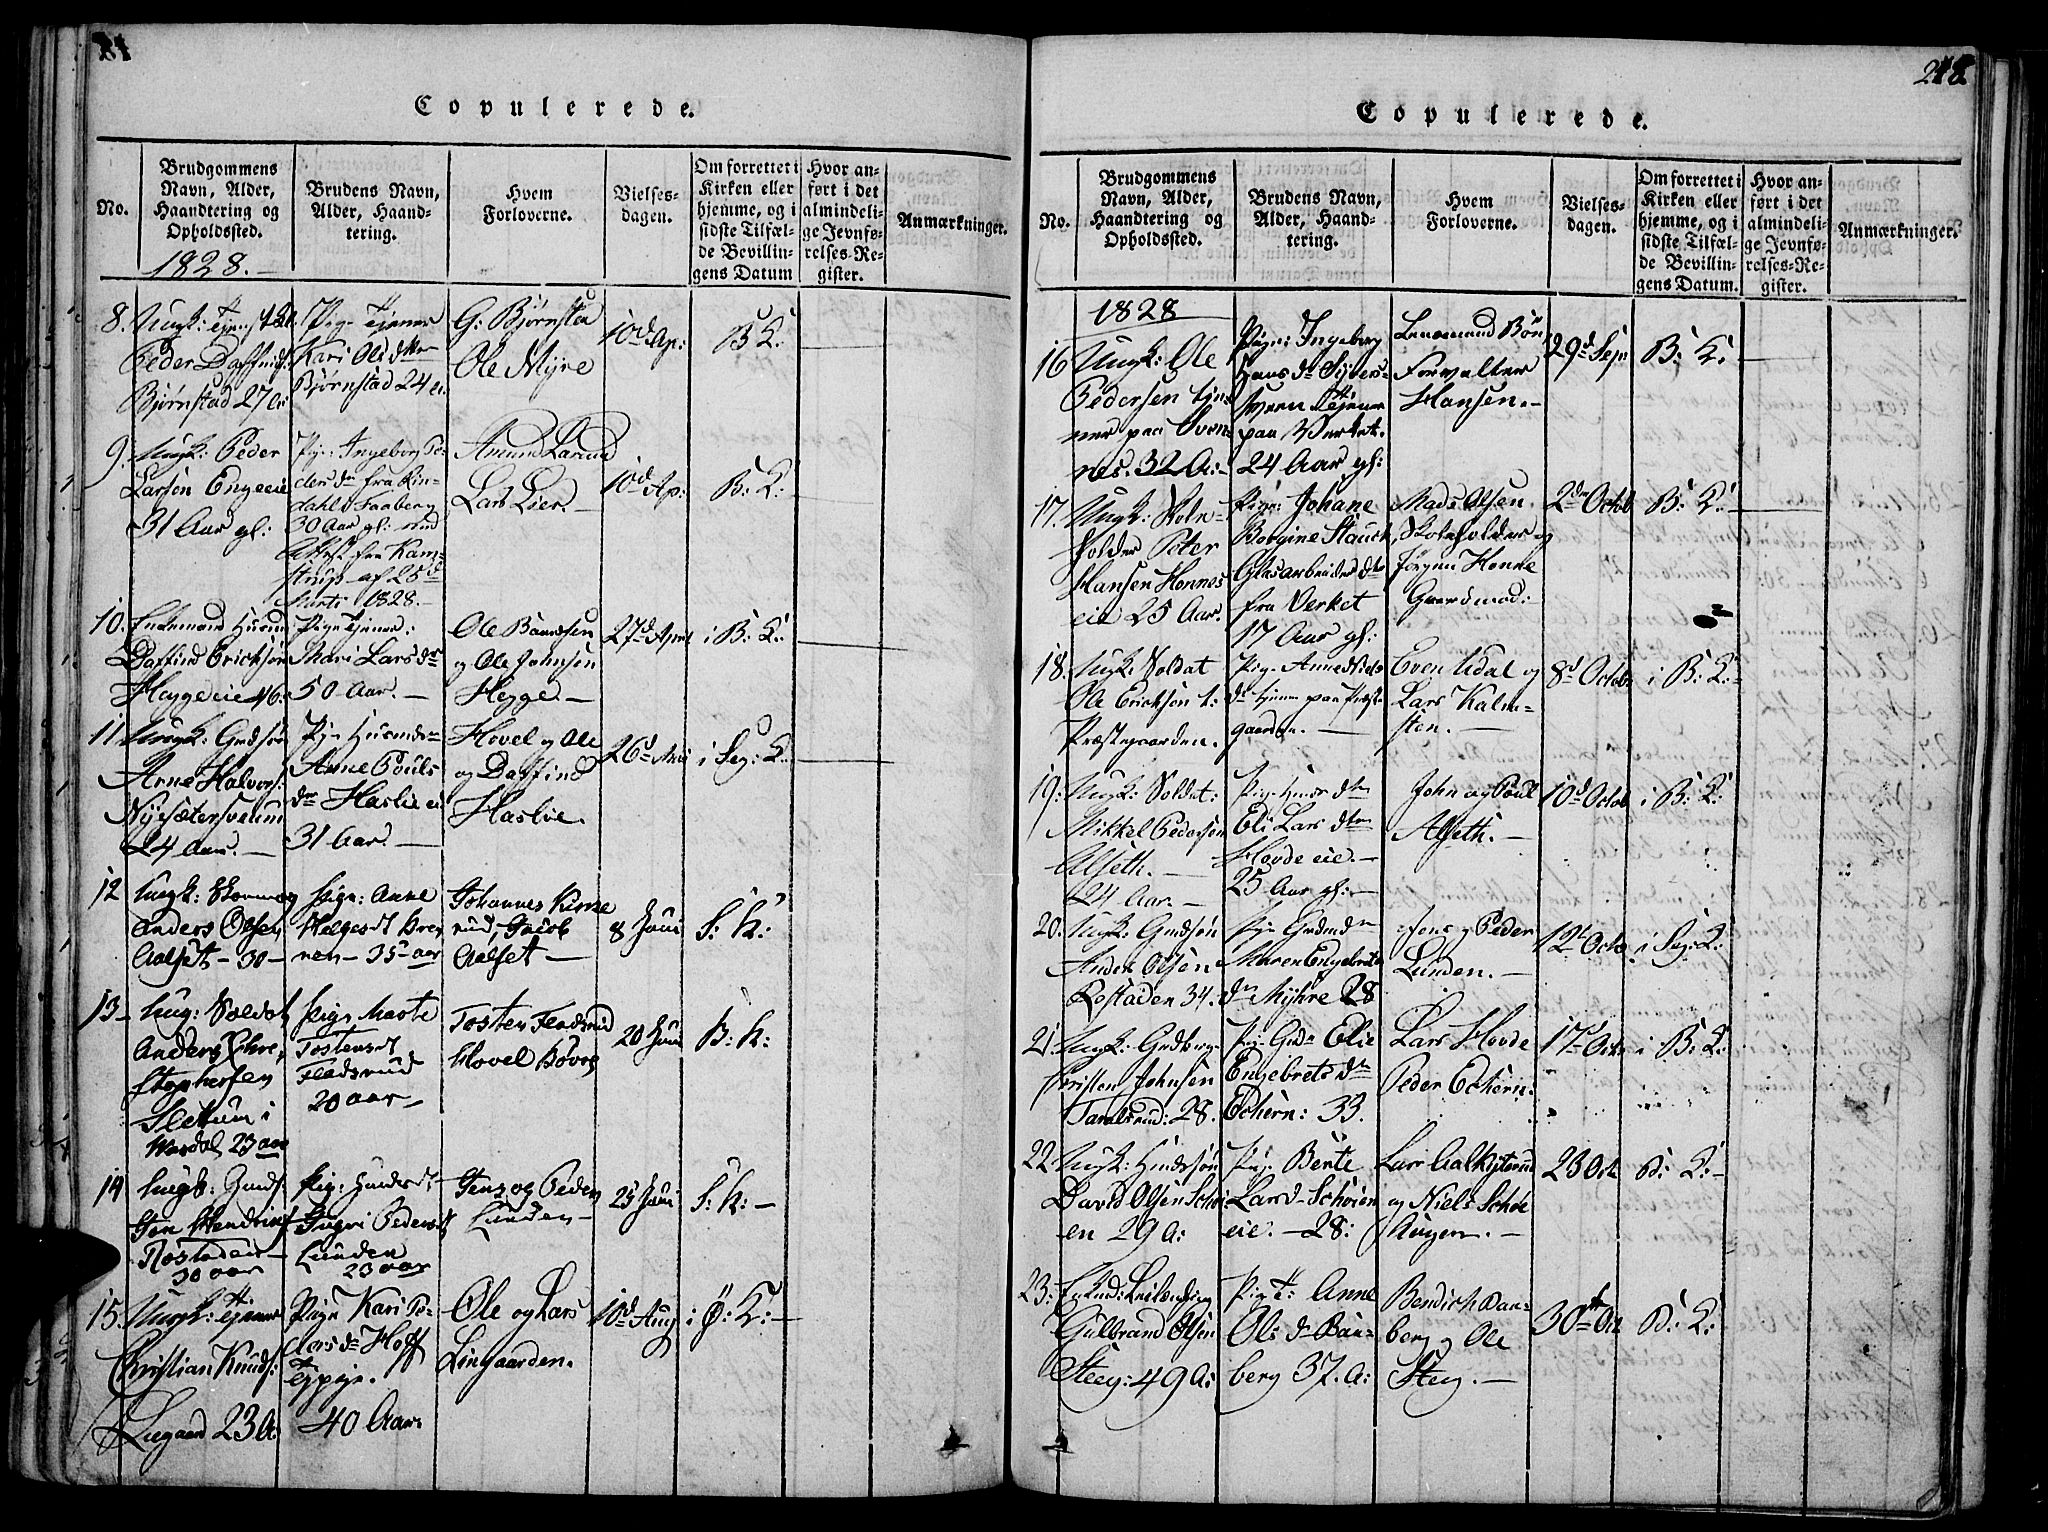 Copulerede.
No.
Brudgommens
Navn, Alder,
Haandtering og
Opholdssted.
1828.
Brudens Navn,
Alder, Haand-
tering.
Hvem
Forloverne.
Vielses-
dagen.
Om forrettet i
Kirken eller
hjemme, og i
sidste Tilfæl-
de Bevillin-
gens Datum
Hvor an-
ført i det
almindeli-
ge Jevnfø-
relses-Re-
gister.
Anmærkninger.
8.
Peder Daffind:
Bjørnstad 27
Pige Tjener
Kari Olsd
Bjørnstad 24
G: Bjørnstad
Ole Myre
10d Ap:
B: K:
9.
Ungk: Peder
Larsen Engeeie
31 Aar gl:
Pige: Ingeborg Pe-
dersd fra Rin-
dahl Faaberg
30 Aar gl: med
Attest fra Kam-
strup af 25d
Marti 1828.
Amund Larud
Lars Lier.
10d Ap:
B: K:
10.
Enkemand Husmd
Daffind Erichsøn
Heggeeie 46:
Pige Tjener:
Mari Larsdr
50 Aar.
Ole
og Ole Johnsen
Hegge
27d April
i B: K:
11
Ungk: Grdsøn
Arne Halvors:
Nysætersveum
24 Aar.
Pige Husmds
Anne Pouls
dr Haslieei
31 Aar.
Hovel og Ole
og Daffind
Haslie.
26d
i Seg: K:
12
Ungk:
Anders Olsen
Aalset 30
Pige: Anne
Helgesdt Bren
nen 35 aar
Johannes
rud, Jacob
Aalset
8 Juni
S: K:
13
Ung: Soldat
Anders Chri-
stophersen
Slettum i
Wardal 23 aar
Pige Marte
Tostensdt
Fladsrud
20 aar
Tosten Fladsrud
Hovel Bøvre
20 Juni
B: K:
14
Ungk: Gmds:
Jon Hendrichs
Rostaden
30 aar
Pige: Gmdsdt
Ingri Pedersdt
Lunden
23 aar
Jens og Peder
Lunden
25 Juni
S: K:
15.
Ungk: Tjener
Christian Knuds:
Liegaard 23 A:
Pige Kari Pe-
dersd Hoff
Eje.
40 Aar
Ole og Lars
Liegaarden.
10d Aug
i Ø: K:
Copulerede.
No.
Brudgommens
Navn, Alder,
Haandtering og
Opholdssted.
Brudens Navn,
Alder, Haand-
tering.
Hvem
Forloverne.
Vielses-
dagen.
Om forrettet i
Kirken eller
hjemme, og i
sidste Tilfæl-
de Bevillin-
gens Datum.
Hvor an-
ført i det
almindeli-
ge Jevnfø-
relses-Re-
gister.
Anmærkninger.
1828
16
Ungk: Ole
Pedersen tje-
ner paa Sven-
nes. 32 A:
Pige: Ingeborg
Hansd Syvers-
sveen Tjener
paa Verket.
24 Aar gl:
Lensmand
Forvalter
Hansen.
29d Sep
B: K:
17.
Ungk: Skole-
holder Peter
Hansen Honnes
eie 25 Aar.
Pige: Johane
Borgine Stauch,
Glasarbeiderdtr
fra Verket
17 Aar gl:
Mads Olsen
Skoleholder og
Jørgen Honne
Gaardmd:
2d Octob
B: K:
18.
Ungk: Soldat
Ole Erichsen t:
Præstegaarden.
Pige Anne
dr tjener paa Præst
gaarden.
Even Udal og
Lars Kalm-
sten.
8d Octob
i B: K:
19:
Ungk: Soldat:
Mikkel Pedersen
Alseth.
24 Aar.
Pige Husmdsdtr
Eli Larsdtr
Hovde eie.
25 Aar gl:
John og Poul
Alseth.
10d Octob
i B: K:
20.
Ungk: Gmdsøn
Anders Olsen
Rostaden 34.
Pige Grdmdsdr
Maren Engebrets
dr Myhre 28
Jens og Peder
Lunden.
12t Octo
i Seg: K:
21.
Ungk: Grdbrg
Christen Johnsen
Taralsrud: 28.
Pige Grd Elie
Engebretsdtr
Echern: 33.
Lars Hovde
Peder Echern:
17d Octo
i B: K:
22.
Ungk: Husmdsøn
David Olsen Schøi-
en 29 A:
Pige Berte
Larsd Schøien
eie. 28:
Lars
og Niels Schøi
ungen.
23 Oct
B: K:
23.
Enkmd: Leilending
Gulbrand Olsen
Steeg: 49 A:
Pige T: Anne
Olsdr Bau-
berg 37. A:
Bendich Bau-
berg og Ole
Steeg.
30te Oct
B: K: